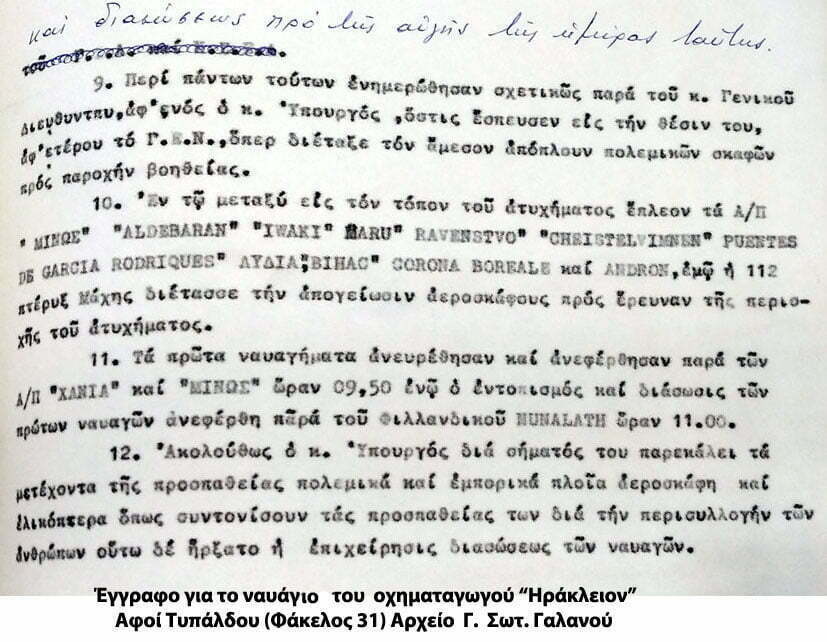 καί διασώσεως πρό τῆς αὐγῆς τῆς ἡμέρας ταύτης.
τοῦ
9. Περί πάντων τούτων ἐνημερώθησαν σχετικῶς παρά τοῦ κ. Γενικοῦ
Διευθυντου,ἀφ'ἑνός ὁ κ. Ὑπουργός ,ὅστις ἔσπευσεν εἰς τήν θέσιν του,
ἀφ'ετέρου τό Γ.Ε.Ν.,ὅπερ διέταξε τόν ἄμεσον ἀπόπλουν πολεμικῶν σκαφῶν
πρός παροχήν βοηθείας.
10. Ἐν τῷ μεταξύ εἰς τόν τόπον τοῦ ἀτυχήματος ἔπλεον τά Α/Π
" ΜΙΝΩΣ" "ALDEBARAN" "IWAKI MARU" RAVENSTVO" "CHRISTELVIMNEN" PUENTES
DE GARCIA RODRIQUES" ΛΥΔΙΑ",BIHAC" CORONA BOREALE καί ANDRON,ἐμῷ ἡ 112
πτέρυξ Μάχης διέτασσε τήν ἀπογείωσιν ἀεροσκάφους πρός ἔρευναν τῆς περιο-
χῆς τοῦ ἀτυχήματος.
11. Τά πρῶτα ναυαγήματα ἀνευρέθησαν καί ἀνεφέρθησαν παρά τῶν
Α/Π "ΧΑΝΙΑ" καί "ΜΙΝΩΣ" ὥραν 09,50 ἐνῷ ὁ ἐντοπισμός καί διάσωσις τῶν
πρώτων ναυαγῶν ἀνεφέρθη παρά τοῦ Φιλλανδικοῦ NUNALATH ὥραν 11.00.
12. Ἀκολούθως ὁ κ. Ὑπουργός διά σήματός του παρεκάλει τά
μετέχοντα τῆς προσπαθείας πολεμικά καί ἐμπορικά πλοῖα ἀεροσκάφη καί
ἑλικόπτερα ὅπως συντονίσουν τάς προσπαθείας των διά τήν περισυλλογήν τῶν
ἀνθρώπων οὕτω δέ ἤρξατο ἡ ἐπιχείρησις διασώσεως τῶν ναυαγῶν.
Έγγραφο για το ναυάγιο του οχηματαγωγού "Ηράκλειον"
Αφοί Τυπάλδου (Φάκελος 31) Αρχείο Γ. Σωτ. Γαλανού